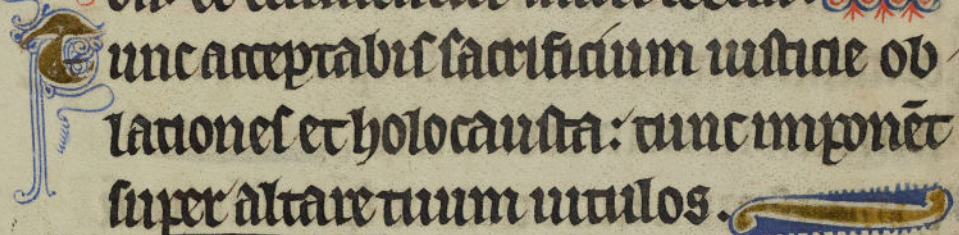 Tunc acceptabis sacrificium iusticie ob
lationes et holocausta: tunc inponēt
super altare tuum uitulos.